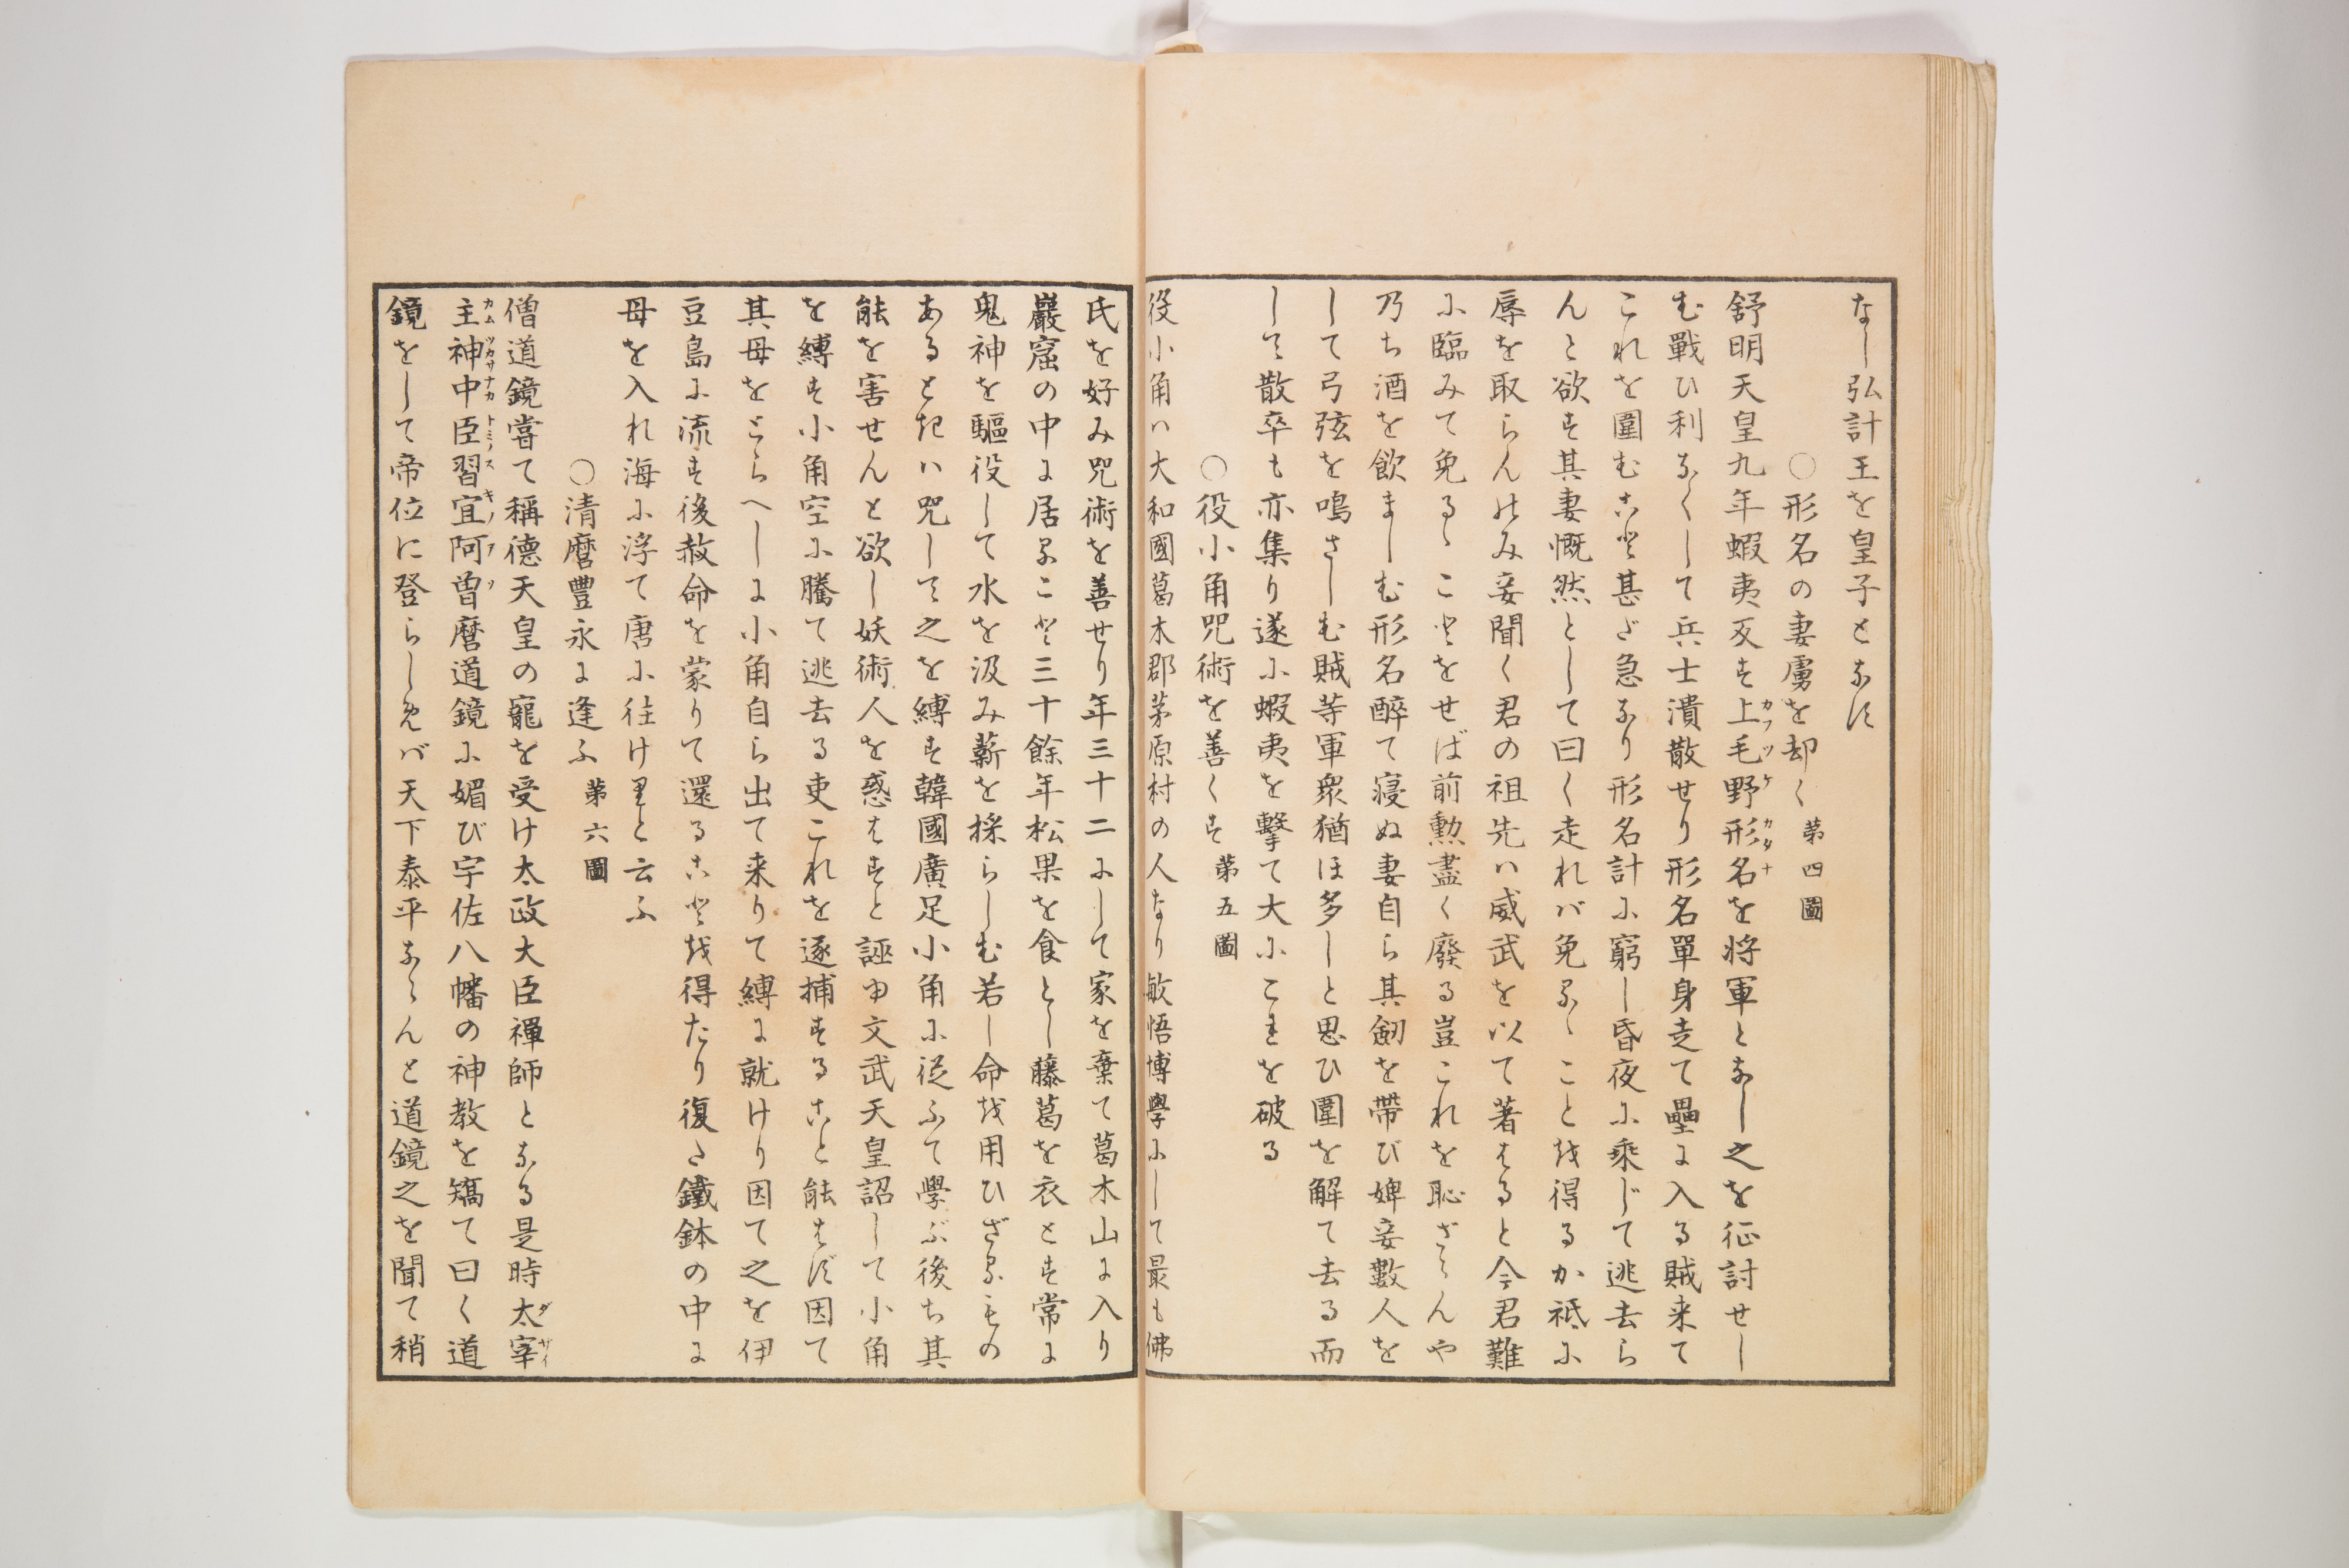 なし弘計王を皇子となす
○形名の妻虜を却く 第四圖
舒明天皇九年蝦夷反す上毛野形名を将軍となし之を征討せし
む戰ひ利なくして兵士潰散せり形名單身走て壘に入る賊来て
これを圍むこと甚だ急なり形名計に窮し昏夜に乘じて逃去ら
んと欲す其妻慨然として曰く走れバ免るゝことを得るか祗に
辱を取らんのみ妾聞く君の祖先ハ威武を以て著はると今君難
に臨みて免るゝことをせば前勲盡く廢る豈これを恥ざらんや
乃ち酒を飲ましむ形名醉て寝ぬ妻自ら其劒を帶び婢妾數人を
して弓弦を鳴さしむ賊等軍衆猶ほ多しと思ひ圍を解て去る而
して散卒も亦集り遂に蝦夷を撃て大にこれを破る
○役小角咒術を善くす 第五圖
役小角ハ大和國葛木郡茅原村の人なり敏悟博學にして最も佛
氏を好み咒術を善せり年三十二にして家を棄て葛木山に入り
巖窟の中に居ること三十餘年松果を食とし藤葛を衣とす常に
鬼神を驅役して水を汲み薪を採らしむ若し命を用ひざるもの
あるときハ咒して之を縛す韓國廣足小角に従ふて學ぶ後ち其
能を害せんと欲し妖術人を惑はすと誣申文武天皇詔して小角
を縛す小角空に騰て逃去る吏これを逐捕すること能はず因て
其母をとらへしに小角自ら出て来りて縛に就けり因て之を伊
豆島に流す後赦命を蒙りて還ることを得たり復た鐵鉢の中に
母を入れ海に浮て唐に往けりと云ふ
○清麿豐永に逢ふ 第六圖
僧道鏡嘗て稱德天皇の寵を受け太政大臣禪師となる是時太宰
主神中臣習宜阿曽麿道鏡に媚び宇佐八幡の神教を矯て曰く道
鏡をして帝位に登らしめバ天下泰平ならんと道鏡之を聞て稍